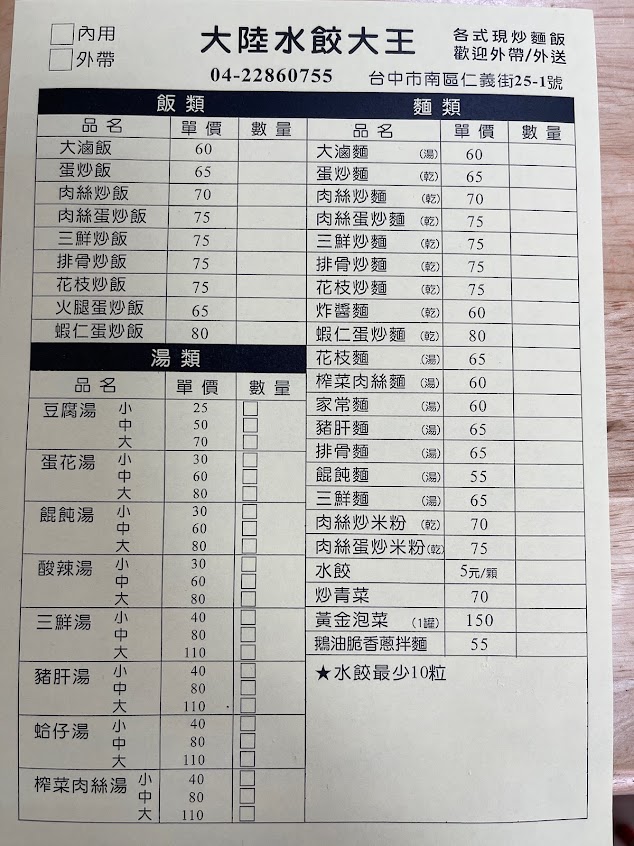 內用
外帶
大陸水餃大王
各式現炒麵飯
歡迎外帶/外送
04-22860755 台中市南區仁義街25-1號
飯類
品名 單價 數量
大滷飯 60
蛋炒飯 65
肉絲炒飯 70
肉絲蛋炒飯 75
三鮮炒飯 75
排骨炒飯 75
花枝炒飯 75
火腿蛋炒飯 65
蝦仁蛋炒飯 80
湯類
品名 單價 數量
豆腐湯 小 25
中 50
大 70
蛋花湯 小 30
中 60
大 80
餛飩湯 小 30
中 60
大 80
酸辣湯 小 30
中 60
大 80
三鮮湯 小 40
中 80
大 110
豬肝湯 小 40
中 80
大 110
蛤仔湯 小 40
中 80
大 110
榨菜肉絲湯 小 40
中 80
大 110
麵類
品名 單價 數量
大滷麵 (湯) 60
蛋炒麵 (乾) 65
肉絲炒麵 (乾) 70
肉絲蛋炒麵 (乾) 75
三鮮炒麵 (乾) 75
排骨炒麵 (乾) 75
花枝炒麵 (乾) 75
炸醬麵 (乾) 60
蝦仁蛋炒麵 (乾) 80
花枝麵 (湯) 65
榨菜肉絲麵 (湯) 60
家常麵 (湯) 60
豬肝麵 (湯) 65
排骨麵 (湯) 65
餛飩麵 (湯) 55
三鮮麵 (湯) 65
肉絲炒米粉 (乾) 70
肉絲蛋炒米粉(乾) 75
水餃 5元/顆
炒青菜 70
黃金泡菜 (1罐) 150
鵝油脆香蔥拌麵 55
★水餃最少10粒